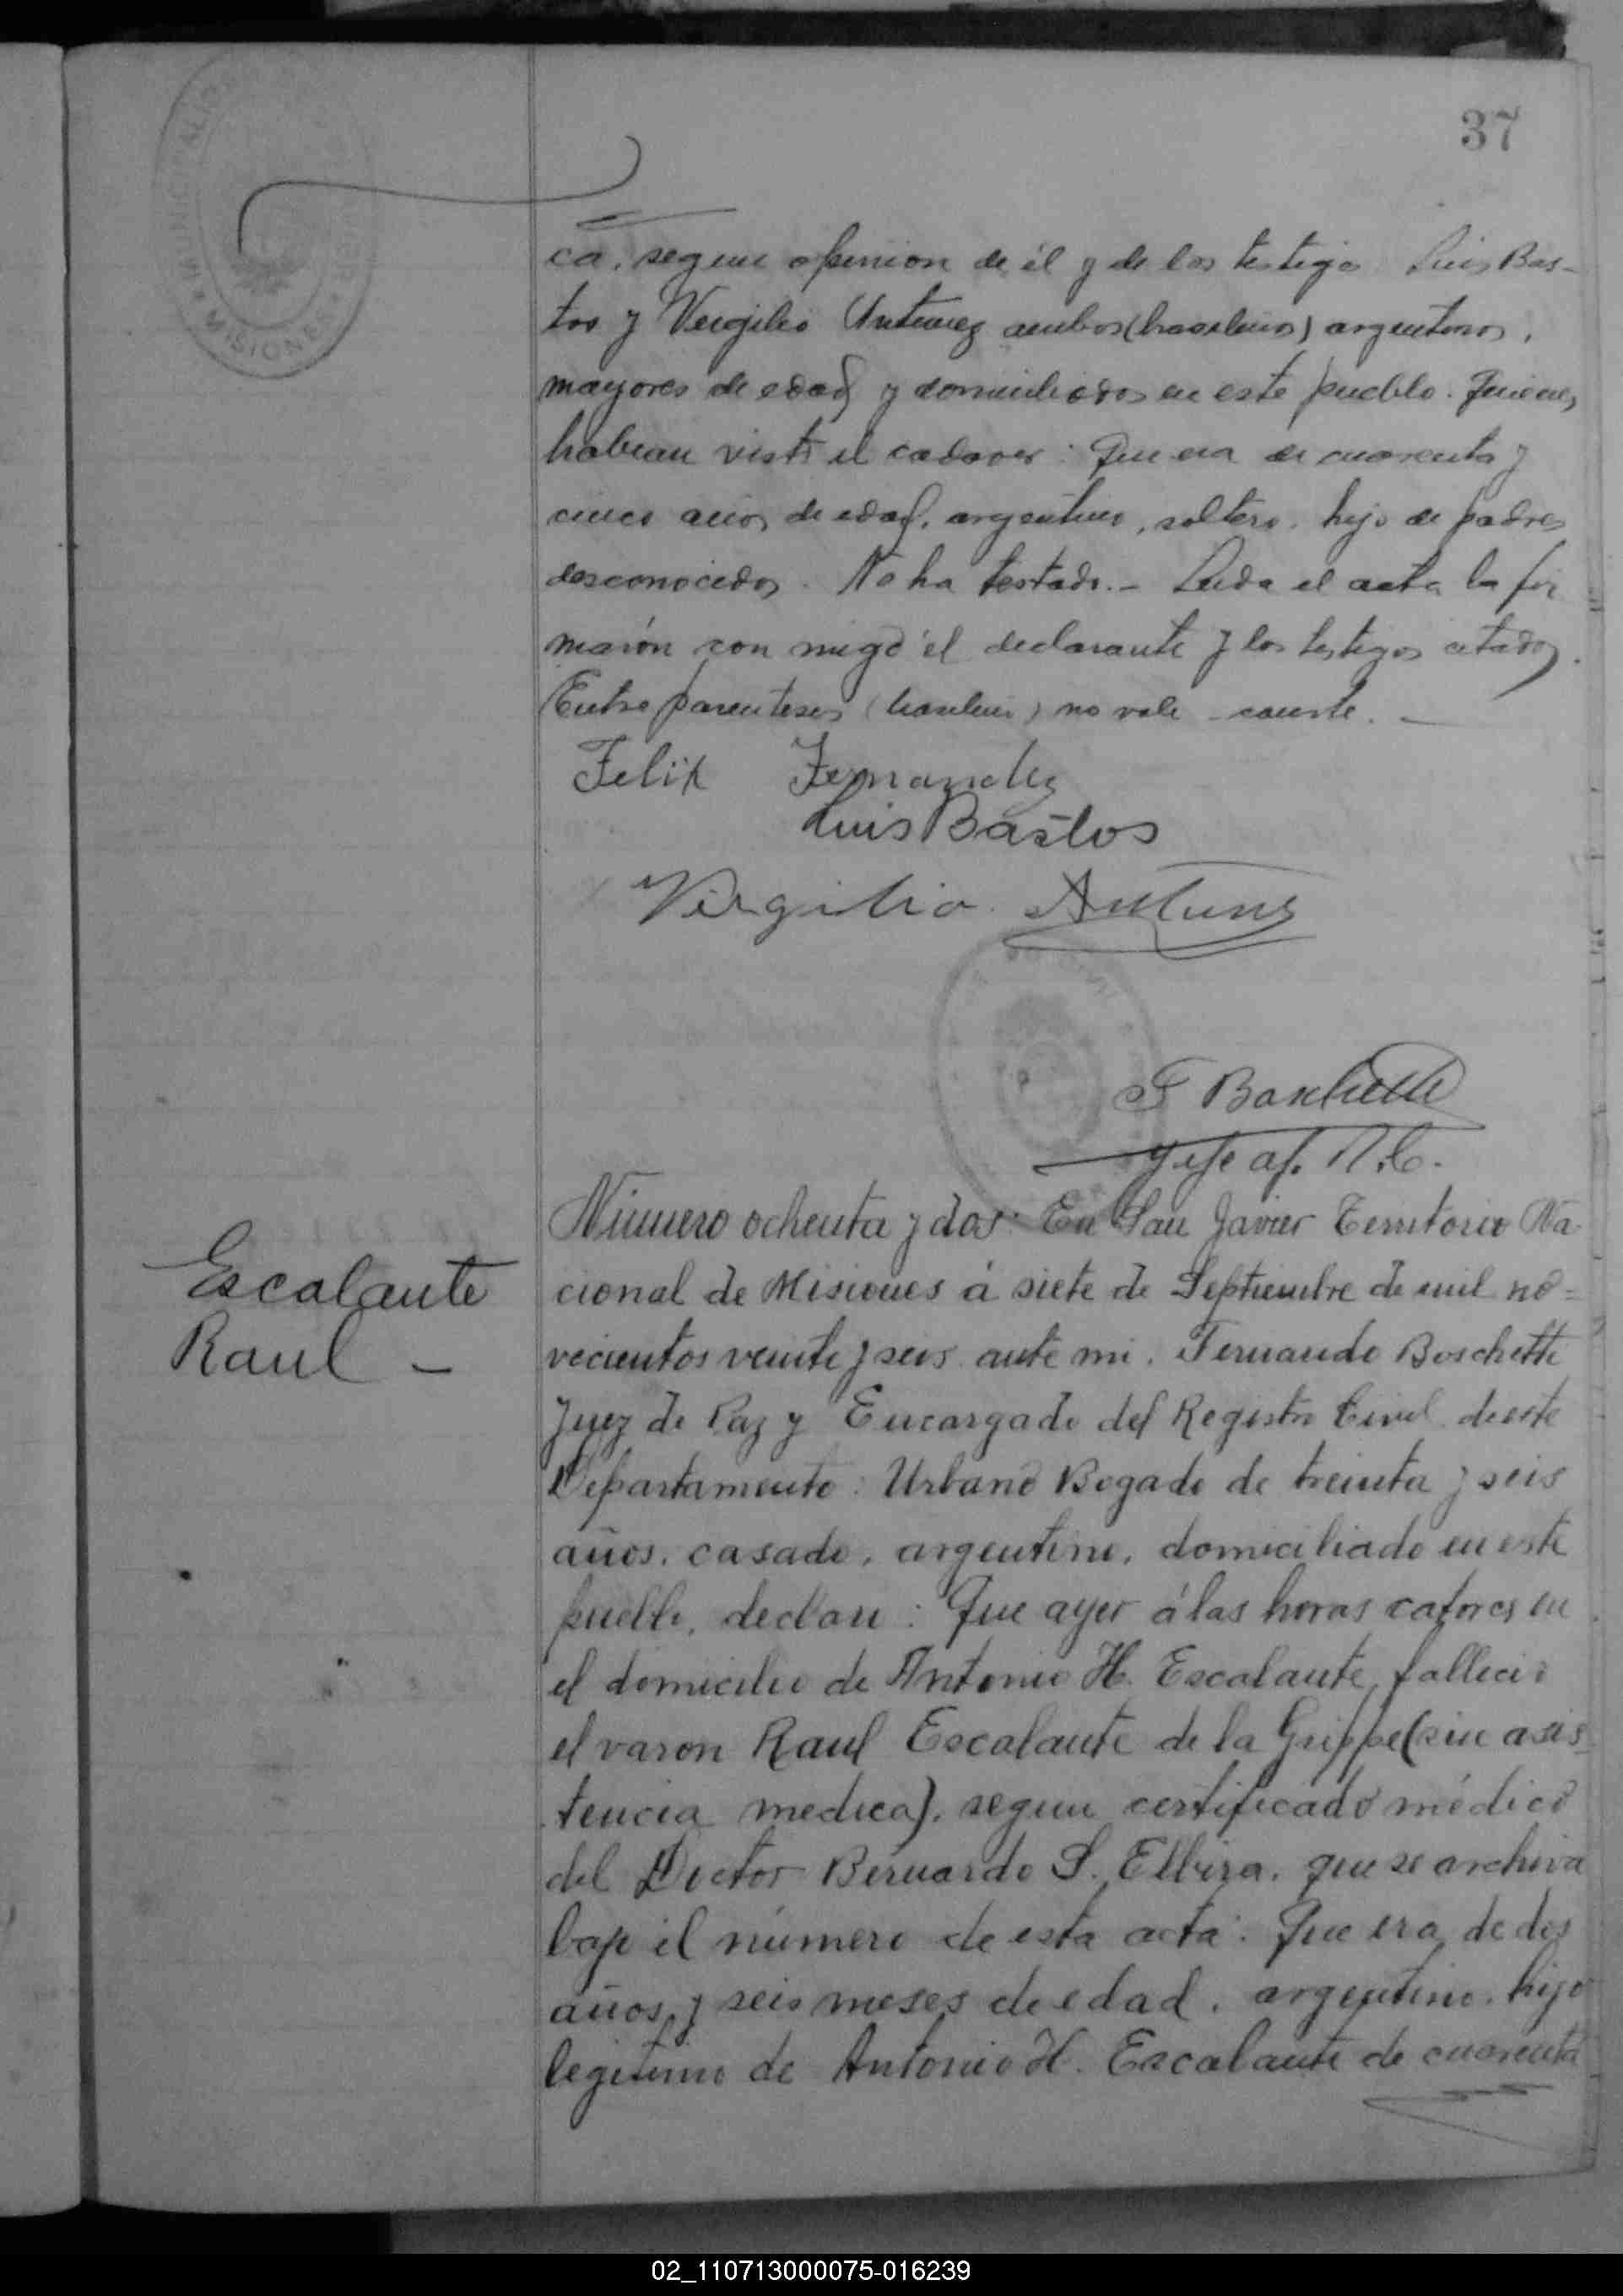 37
MUNICIPALIDAD
MISIONES
ca, segun opinion de él y de los testigos Luis Bas-
tos y Vergilio Antunez ambos (brasileros) argentinos,
mayores de edad y domiciliados en este pueblo. Quienes
habian visto el cadaver: Que era de cuarenta y
cinco años de edad, argentino, soltero, hijo de padres
desconocidos. No ha testado.- Leida el acta la fir
maron con migo el declarante y los testigos citados.
Entre parentesis (brasileros) no vale - conste. -
Felix Fernandez
Luis Bastos
Virgilio Antuns
F Boschetti
Jefe of. R.C.
Escalante
Raul -
Número ochenta y dos: En San Javier Territorio Na-
cional de Misiones á siete de Septiembre de mil no=
vecientos veinte y seis ante mi, Fernando Boschetti
Juez de Paz y Encargado del Registro Civil de este
Departamento: Urbano Bogado de treinta y seis
años, casado, argentino, domiciliado en este
pueblo, declaró: Que ayer á las horas catorce en
el domicilio de Antonio H. Escalante, falleció
el varon Raul Escalante de la Grippe (sin asis-
tencia medica), segun certificado médico
del Doctor Bernardo S. Elbira, que se archiva
bajo el número de esta acta: Que era de dos
años y seis meses de edad, argentino, hijo
legitimo de Antonio H. Escalante de cuarenta
02_110713000075-016239